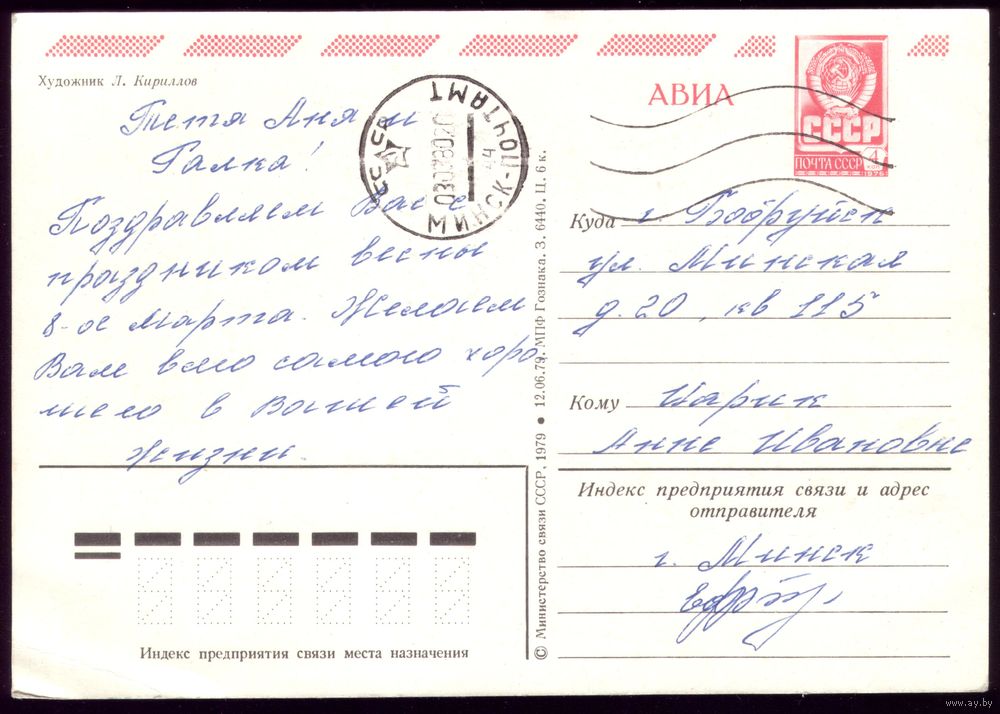 Художник Л. Кириллов
Тетя Аня и
Галка!
Поздравляем Вас с
праздником весны
8-ое марта. Желаем
Вам всего самого хоро
шего в Вашей
жизни.
Индекс предприятия связи места назначения
МИНСК-ПОЧТАМТ
© Министерство связи СССР, 1979 ● 12.06.79. МПФ Гознака. З. 6440. Ц. 6 к.
АВИА
СССР
ПОЧТА СССР
Куда г. Бобруйск
ул. Минская
д. 20, кв 115
Кому Царик
Анне Ивановне
Индекс предприятия связи и адрес
отправителя
г. Минск
www.ay.by